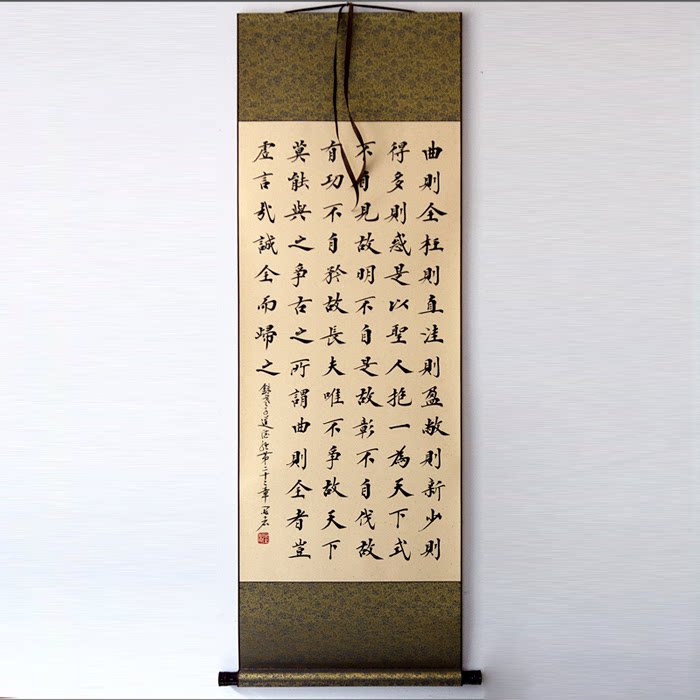 曲則全枉則直洼則盈敝則新少則
得多則惑是以聖人抱一為天下式
不自見故明不自是故彰不自伐故
有功不自矜故長夫唯不争故天下
莫能與之争古之所謂曲則全者豈
虛言哉誠全而歸之
錄老子道德經第二十二章